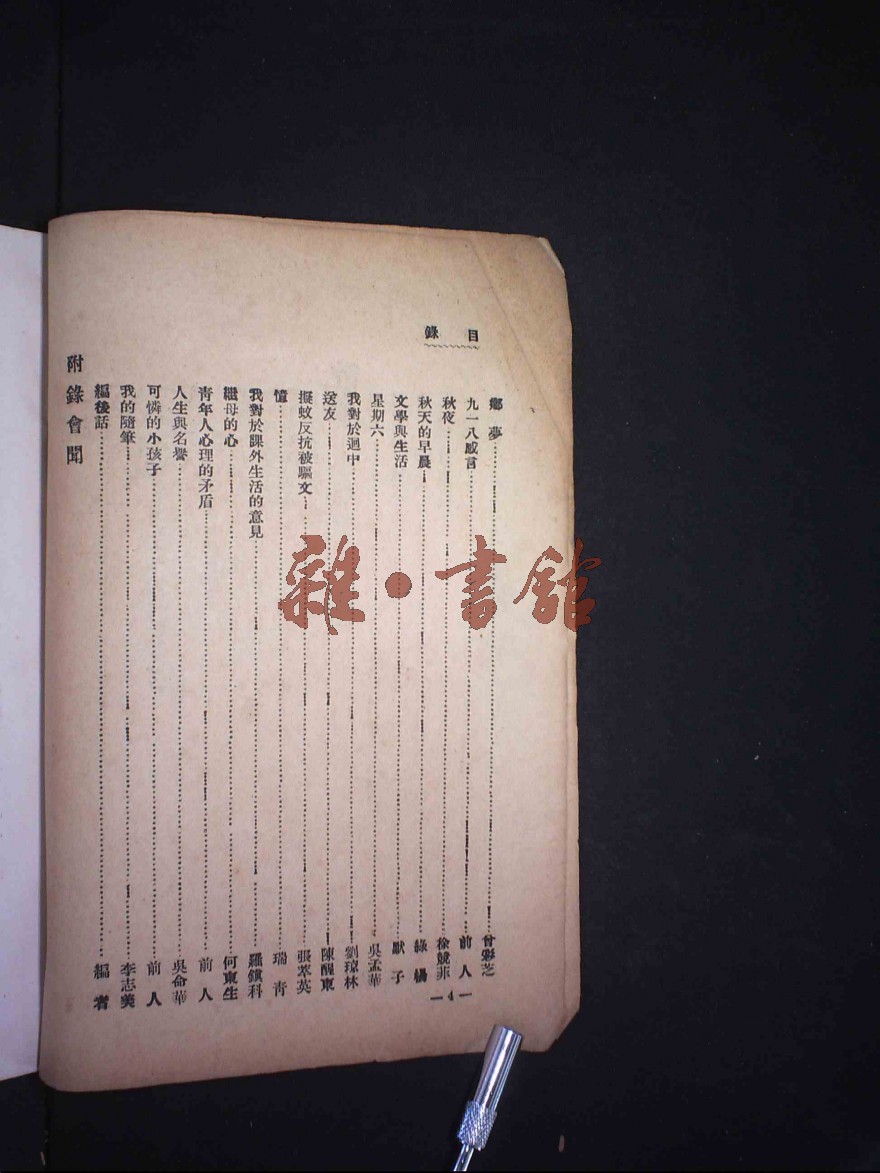 目錄
鄉夢 曾彩芝
九一八感言 前人
秋夜 徐競菲
秋天的早晨 綠楊
文學與生活 默子
星期六 吳孟華
我對於週中 劉瓊林
送友 陳醒東
擬蚊反抗被驅文 張翠英
憶 瑞青
我對於課外生活的意見 羅鎮科
繼母的心 何東生
靑年人心理的矛盾 前人
人生與名譽 吳命華
可憐的小孩子 前人
我的隨筆 李志美
編後話 編者
附錄會聞
—4—
雜·書館